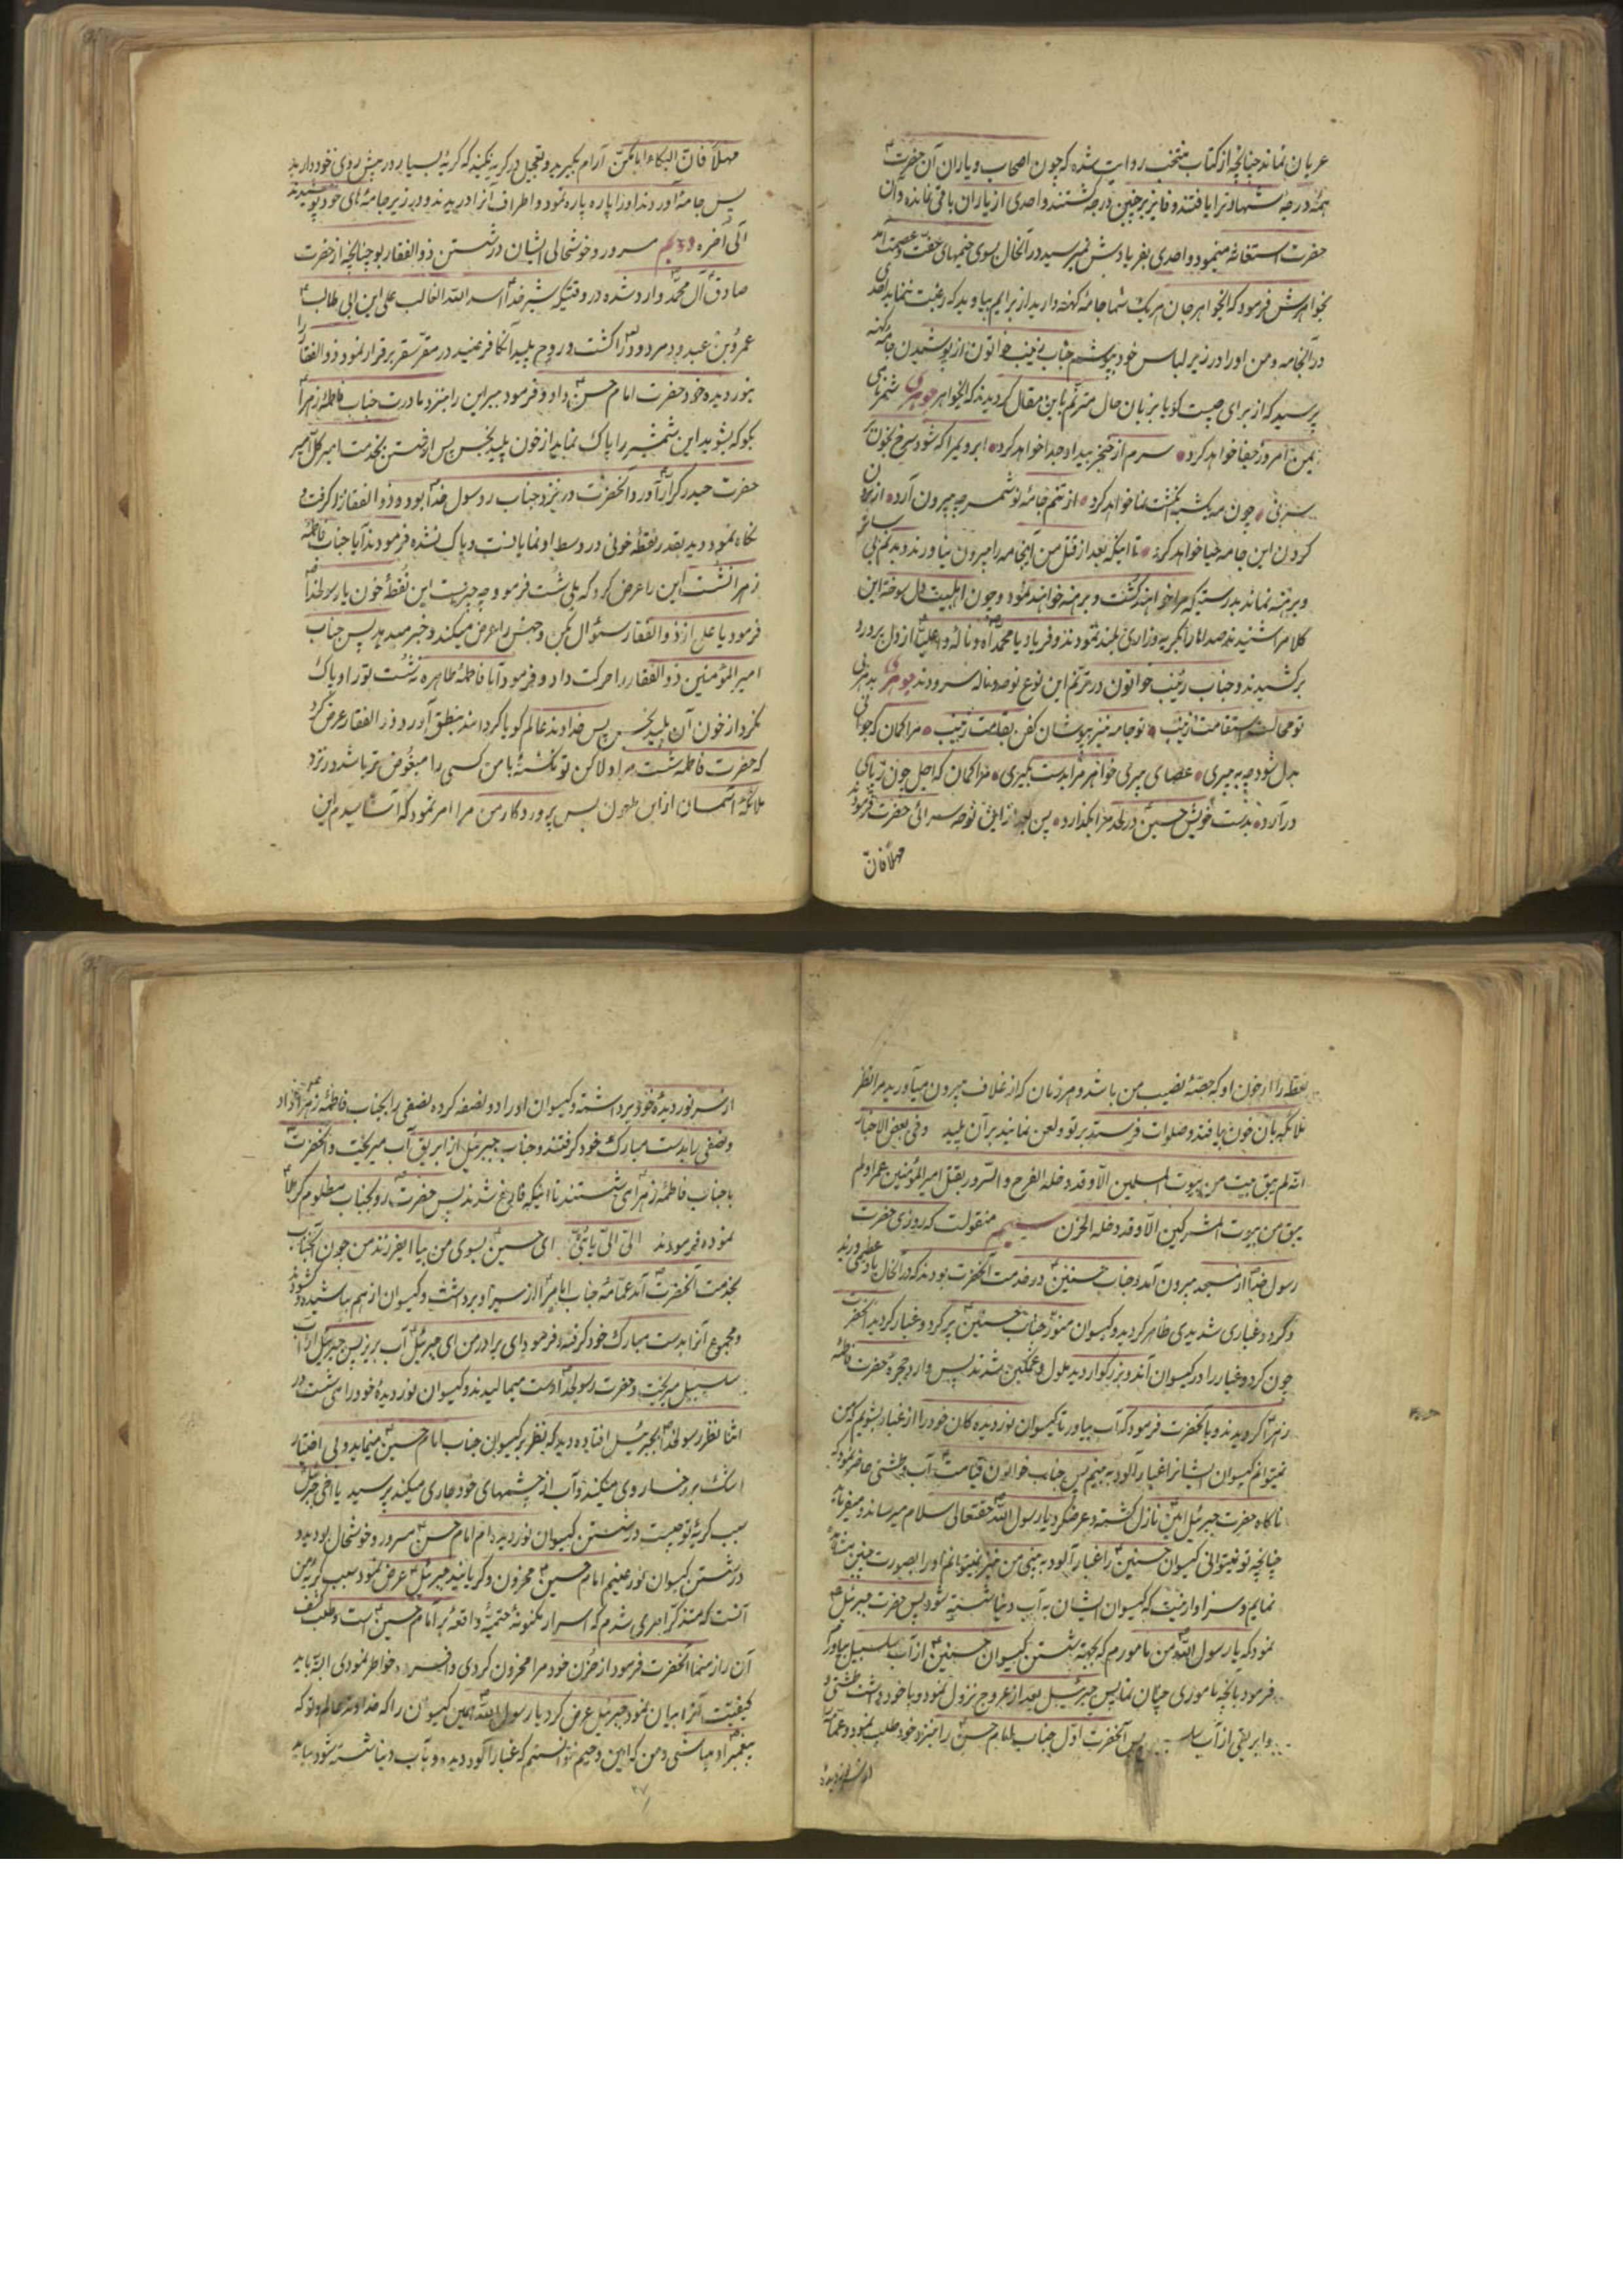 عریان نماند چنانچه از کتاب منتخب روایت شده که چون اصحاب و یاران آن حضرت
همه درجه شهادترا یافتند و فایز بر چنین درجه گشتند و احدی از یاران باقی نمانده و آن
حضرت استغاثه مینمود و احدی بفریادش نمیرسید در آنحال بسوی خیمهای عفت و عصمت آمد
بخواهرش فرمود که ایخواهر جان هر یک شما جامه کهنه دارید از برایم بیاورید که رغبت ننماید احدی
در آنجامه و من او را در زیر لباس خود بپوشم جناب زینب خواتون از پوشیدن جامه کهنه
پرسید که از برای چیست گویا بزبان حال مترنم باین مقال گردیدند که ایخواهر جوهری شمر
بمن امروز جفا خواهد کرد سرم از خنجر بیداد جدا خواهد کرد
چون از تنم جامه نو شمر چه بیرون آرد
کردن این جامه حیا خواهد کرد تا اینکه بعد از قتل من اینجامه را بیرون نیاورند و بدنم بی
و برهنه نماند بدرستیکه مرا خواهند کشت و برهنه خواهند نمود و چون اهلبیت دل سوخته این
کلامرا شنیدند صداها را بگریه و زاری بلند نمودند و فریاد یا محمداه و ناله وا علیا از دل پر درد
برکشیدند و جناب زینب خواتون در ترنم این نوع نوحه و ناله سرودند جوهری
تو جامه نیز بپوشان کفن بقامت زینب مرا گمان که جوانی
بدل شود چه به پیری عصای پیری خواهر مرا بدست بگیری مرا گمان که اجل چون ز پای
درآرد بدست خویش حسین در لحد مرا بگذارد پس بعد از این نوحه سرائی حضرت فرمود
مهلا فان
مهلا فان البکاء امامکن آرام بگیرید و تعجیل در گریه نکنید که گریه بسیار در پیش روی خود دارید
پس جامه آوردند او را پاره پاره نمود و اطراف آنرا درید و در زیر جامه های خود پوشیدند
الی آخره دویم سرور و خوشحالی ایشان در شستن ذوالفقار بود چنانچه از حضرت
صادق آل محمد وارد شده در وقتیکه شیر خدا اسد الله الغالب علی ابن ابی طالب
عمرو بن عبدود مردود را کشت و روح پلید آنکافر عنید در مقر سقر برقرار نمود ذوالفقار را
بنور دیده خود حضرت امام حسن داد و فرمود ببر این را بنزد مادرت جناب فاطمه زهرا
بگو که بشوید این شمشیر را پاک نماید از خون پلید نجس پس از شستن بخدمت امیر کل امیر
حضرت حیدر کرار آورد و آنحضرت در نزد جناب رسول خدا بود و ذوالفقار را گرفت و
نگاه نمود و دید بقدر نقطه خونی در وسط او نمایانست و پاک نشده فرمودند آیا جناب فاطمه
زهرا نشست این را عرض کرد که بلی شست فرمود چه چیزست این نقطه خون یا رسول خدا
فرمود یا علی از ذوالفقار سئوال بکن و جهتش را عرض میکند و خبر میدهد پس جناب
امیر المؤمنین ذوالفقار را حرکت داد و فرمود آیا فاطمه طاهره نشست تو را و پاک
نکرد از خون آن پلید نجس پس خداوند عالم گویا گردانید بنطق آورد ذوالفقار عرض کرد
که حضرت فاطمه شست مرا و لاکن تو نکشته با من کسی را مبغوض تر باشد در نزد
ملائکه آسمان از این ملعون پس پروردگار من مرا امر نمود که آشامیدم این
نقطه را از خون او که حصه نصیب من باشد و هر زمان که از غلاف بیرون میآورید مرا نظر
ملائکه بآن خون بیافتد و صلوات فرستند بر تو و لعن نمایند بر آن پلید و فی بعض الاخبار
انه لم یبق بیت من بیوت المسلمین الا و قد دخله الفرح و السرور بقتل امیر المؤمنین عمرا و لم
یبق من بیوت المشرکین الا و قد دخله الحزن سیم منقولست که روزی حضرت
رسول خدا از مسجد بیرون آمد و جناب حسنین در خدمت آنحضرت بودند که در آنحال باد عظیمی وزید
و گرد و غباری شدیدی ظاهر گردید و گیسوان منور جناب حسنین پر گرد و غبار گردید آنحضرت
چون گرد و غبار را در گیسوان آندو بزرگوار دید ملول و غمگین شدند پس وارد حجره حضرت فاطمه
زهرا گردیدند و با آنحضرت فرمود که آب بیاور تا گیسوان نور دیده کان خود را از غبار بشویم که من
نمیتوانم گیسوان ایشانرا غبار آلود به بینم پس جناب خواتون قیامت آب و طشتی حاضر نمودند
ناگاه حضرت جبرئیل امین نازل گشته و عرض کرد یا رسول الله حقتعالی سلام میرساند و میفرماید
چنانچه تو نمیتوانی گیسوان حسنین را غبار آلود به بینی من نیز نمیتوانم او را بصورت چنین مشاهده
نمایم و سزاوار نیست که گیسوان ایشان به آب دنیا شسته شود پس حضرت جبرئیل
نمود که یا رسول الله من مامورم که بجهة شستن گیسوان حسنین از آب سلسبیل بیاورم
فرمود بآنچه ماموری چنان نما پس جبرئیل بعد از عروج نزول نمود و با خود داشت طشتی
و ابریقی از آب پس آنحضرت اول جناب امام حسن را بنزد خود طلب نمود و عمامه
از سر نور دیده
از سر نور دیده خود برداشته و گیسوان او را دو نصفه کرده نصفی را بجناب فاطمه زهرا داد
و نصفی را بدست مبارک خود گرفتند و جناب جبرئیل از ابریق آب میریخت و آنحضرت
با جناب فاطمه زهرا می شستند تا اینکه فارغ شدند پس حضرت رو بجناب مظلوم کربلا
نموده فرمودند الی الی یا بنی ای حسین بسوی من بیا ایفرزند من چون آنجناب
بخدمت آنحضرت آمد عمامه جناب امام را از سر او برداشت و گیسوان از هم پاشیده گشود
و مجموع آنرا بدست مبارک خود گرفته فرمود ای برادر من ای جبرئیل آب بریز پس جبرئیل از آب
سلسبیل میریخت و حضرت رسول خدا دست میمالیدند و گیسوان نور دیده خود را می شست در
اثنا نظر رسول خدا بجبرئیل افتاده دید که نظر بر گیسوان جناب امام حسین مینماید و بی اختیار
اشک بر رخسار وی میکند و آب از چشمهای خود جاری میکند پرسید یا اخی جبرئیل
سبب گریه تو چیست در شستن گیسوان نور دیده ام امام حسن مسرور و خوشحال بودید و
در شستن گیسوان نور عینم امام حسین محزون و گریانید جبرئیل عرض نمود سبب گریه من
آنست که متذکر امری شدم که اسرار مکنونه حتمیه واقعه بر امام حسین است و طلب کشف
آن راز منما آنحضرت فرمود از حزن خود مرا محزون کردی و افسرده خاطر نمودی البته باید
کیفیت آنرا بیان نمود جبرئیل عرض کرد یا رسول الله همین گیسوان را که خداوند عالم و تو که
پیغمبر او میباشی و من که امین وحیم نتوانستم که غبار آلود دیده و بآب دنیا شسته شود بباید
۲۷